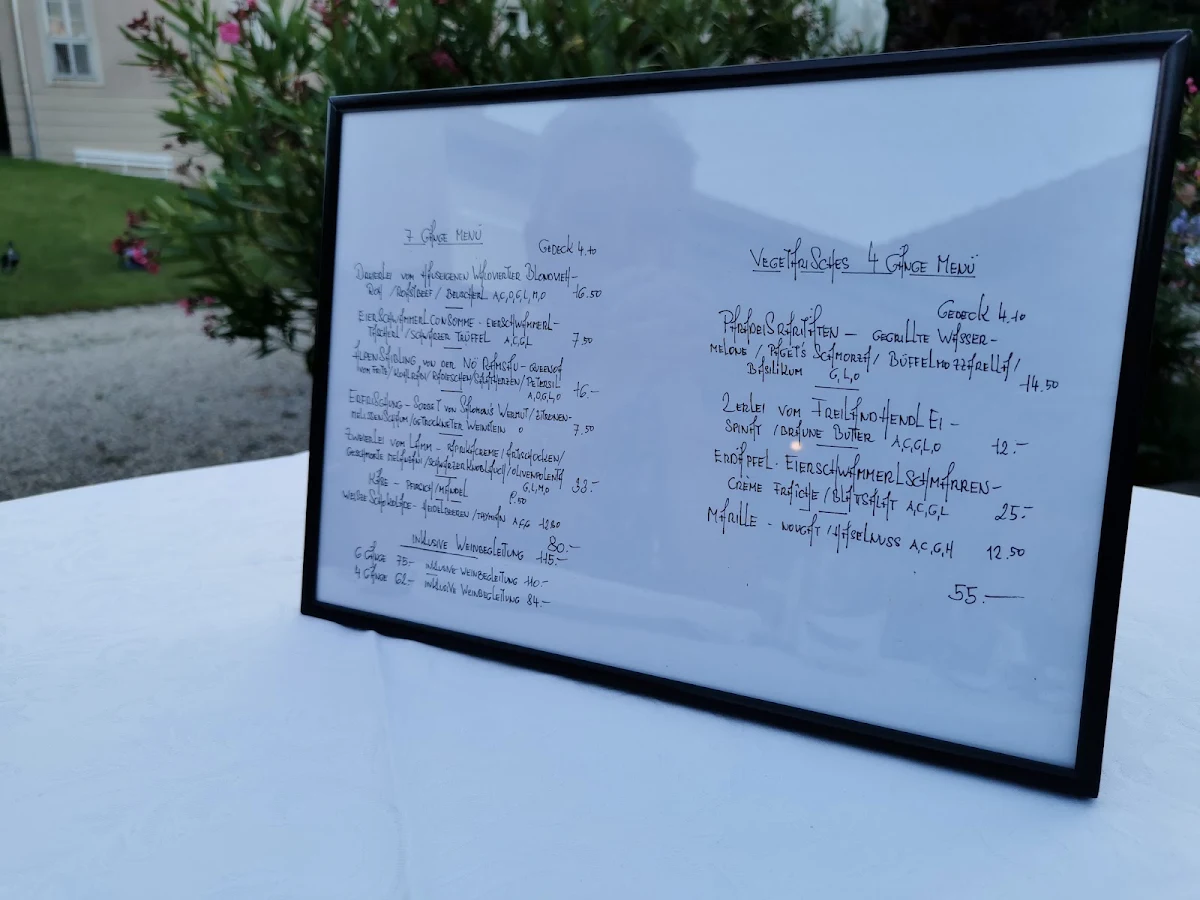 7 GÄNGE MENÜ
GEDECK 4.10
DREIERLEI VOM HAUSEIGENEN WALDVIERTLER BLONDVIEH -
ROH / ROASTBEEF / BEUSCHERL A,C,D,G,L,M,O 16.50
EIERSCHWAMMERLCONSOMME - EIERSCHWAMMERL-
TASCHERL / SCHWARZER TRÜFFEL A,C,G,L 7.50
ALPENSAIBLING VON DER NÖ RAMSAU - QUERSCHNITT
KOHLRABI / RADIESCHEN / SALATHERZEN / PETERSIL
A,D,G,L,O 16.-
ERFRISCHUNG - SORBET VON SALOMON'S WERMUT / ZITRONEN-
MELISSENSCHAUM / GETROCKNETER WEINSTEIN O 7.50
ZWEIERLEI VOM LAMM - PAPRIKACREME / ARTISCHOCKEN /
GESCHMORTE MELANZANI / SCHWARZER KNOBLAUCH / OLIVENPOLENTA
G,L,M,O 33.-
KÄSE - PFIRSICH / MANDEL 9.50
WEISSE SCHOKOLADE - HEIDELBEEREN / THYMIAN A,C,G 12.80
80.-
INKLUSIVE WEINBEGLEITUNG 115.-
6 GÄNGE 75.- INKLUSIVE WEINBEGLEITUNG 110.-
4 GÄNGE 62.- INKLUSIVE WEINBEGLEITUNG 84.-
VEGETARISCHES 4 GÄNGE MENÜ
GEDECK 4.10
PARADEISRARITÄTEN - GEGRILLTE WASSER-
MELONE / PAGET'S SCAMORZA / BÜFFELMOZZARELLA /
BASILIKUM G,L,O 14.50
2ERLEI VOM FREILANDHENDL EI -
SPINAT / BRAUNE BUTTER A,C,G,L,O 12.-
ERDÄPFEL - EIERSCHWAMMERLSCHMARREN -
CRÈME FRAÎCHE / BLATTSALAT A,C,G,L 25.-
MARILLE - NOUGAT / HASELNUSS A,C,G,H 12.50
55.-